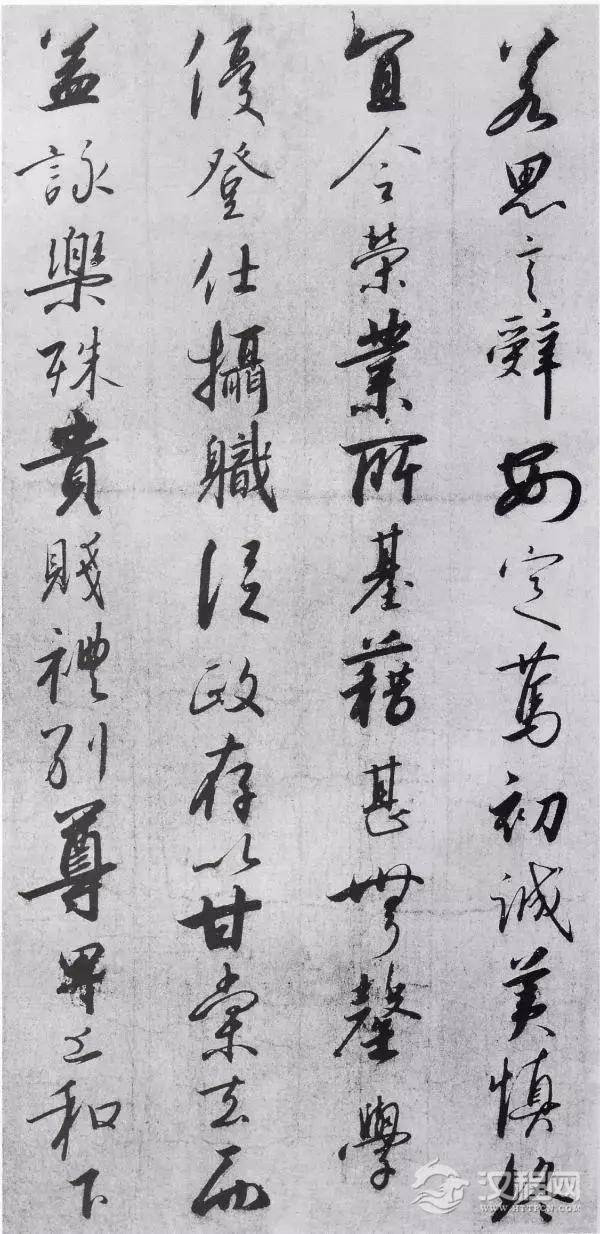 若思言辤安定篤初誠美慎終
宜令榮業所基藉甚無罄學
優登仕攝軄從政存以甘棠去而
益詠樂殊貴賤禮別尊卑上和下
汉程网
WWW.HTTPCN.COM